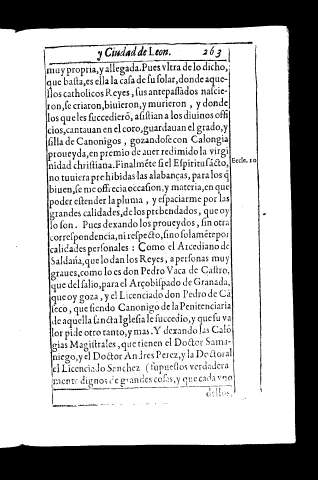 y Ciudad de Leon. 263
muy propria, y allegada. Pues vltra de lo dicho,
que basta, es ella la casa de su solar, donde aque-
llos catholicos Reyes, sus antepassados nascie-
ron, se criaron, biuieron, y murieron, y donde
los que les succedierõ, asistian a los diuinos offi
cios, cantauan en el coro, guardauan el grado, y
silla de Canonigos, gozandose con Calongia
proueyda, en premio de auer redimido la virgi
nidad christiana. Finalmẽte si el Espiritu sãcto,
no tuuiera prehibidas las alabanças, para los q̃
Eccle. 10
biuen, se me offrecia occasion, y materia, en que
poder estender la pluma, y espaciarme por las
grandes calidades, de los prebendados, que oy
lo son. Pues dexando los proueydos, sin otra
correspondencia, ni respecto, sino solamẽte por
calidades personales: Como el Arcediano de
Saldaña, que lo dan los Reyes, a personas muy
graues, como lo es don Pedro Vaca de Castro,
que del salio, para el Arçobispado de Granada,
que oy goza, y el Licenciado don Pedro de Cá
seco, que siendo Canonigo de la Penitenciaria
de aquella sancta Iglesia le succedio, y que su va
lor pide otro tanto, y mas. Y dexando las Calõ
gias Magistrales, que tienen el Doctor Sama-
niego, y el Doctor Andres Perez, y la Doctoral
el Licenciado Sanchez (supuestos verdadera
mente dignos de grandes cosas, y que cada vno
dellos,